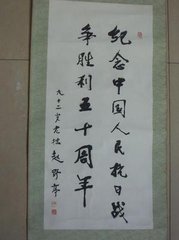 纪念中国人民抗日战
争胜利五十周年
九十二岁老拙赵野亭